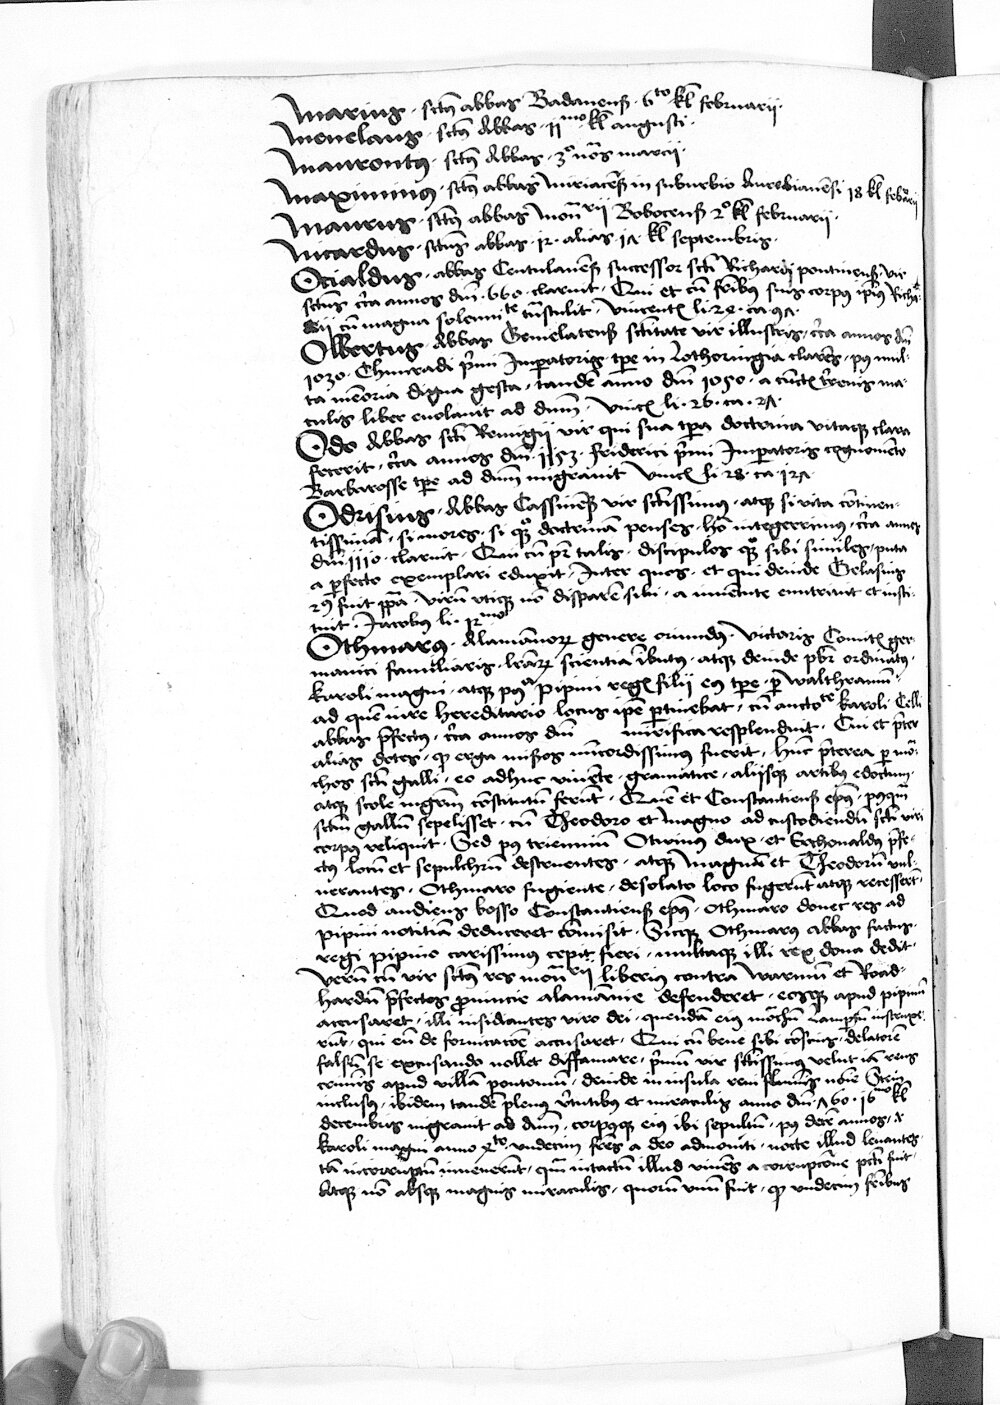 Marius · sctus abbas Badanensis · 6to kl februarii ·
Menelaus · sctus Abbas · 11mo kl augusti ·
Maurontus · sctus Abbas · 3o nonas marcii ·
Maximinus · sctus abbas Miriacensis in suburbio Aurelianensi 18 kl februarii
Maurus · sctus abbas monrii Bobocensis 2o kl februarii ·
Nicardus · sctus abbas · 12 · alias 17 kl septembris ·
Ocialdus · abbas Centulanensis successor scti Richarii pontinensis vir
sctus circa annos dni · 660 · claruit · Qui et cu fribus suis corpus ipius Richa
rii cu magna solennite transtulit · Vincent li · 24 · ca 97 ·
Olbertus · Abbas Gemelatensis sctitate vir illustris, circa annos dni
1030 · Chunradi primi Imperatoris tpe in Lothoringia clares · post mul-
ta memoria digna gesta, tande anno dni 1050 · a cunctis terrenis ma-
culis liber evolavit ad dnm · Vincent li · 26 · ca · 27 ·
Odo Abbas scti Remigii vir qui sua tpa doctrina vitaque clara
fecerit · circa annos dni 1153 · friderici primi Imperatoris cognomento
Barbarosse tpe ad dnm migravit Vincent li 28 · ca · 127 ·
Odrisius · Abbas Cassinensis vir sctissimus · atque si vita continen-
tissima · si mores · si quoque doctrina penses · homo integerrimus · circa annos
dni 1110 · claruit · Qui cu pater talis · discipulos quoque sibi similes, puta
a perfecto exemplari eduxit · Inter quos · et qui deinde Gelasius
2us fuit papa · viru utique no dispare sibi · a iuventute enutrivit et insti-
tuit · Jacobus li · 12mo
Othmarus · Alamanorum genere oriundus · Victoris Comitis ger
manici familiaris · litterarum scientia imbutus · atque deinde pbr ordinatus ·
karoli magni · atque post Pipini regis filii eius tpe · per Walthramu ·
ad que iure hereditario locus ipse pertinebat · cu auctote karoli · Celle
abbas prefectus, circa annos dni mirifica resplenduit · Cui et preter
alias dotes, quod erga miseros misericordissimus fuerit · hunc preterea per mona
chos scti galli, eo adhuc vivente · gramatice, aliisque artibus edoctum ·
atque scole magistrum constitutu ferunt · Que et Constantiensis epus, postquam
sctm gallum sepelisset · cu Theodoro et Magno ad custodiendu scti viri
corpus reliquit · Sed post trienniu Otwinus dux · et Erchonaldus prefe-
ctus locu et sepulchru destruentes · atque Magnu et Theodoru vul-
nerantes · Othmaro fugiente, desolato loco fugerunt atque recessert ·
Quod audiens bosso Constantiensis epus · Othmaro donec res ad
pipini notitia deduceret comisit · Sicque Othmarus abbas factus
regi pipino carissimus cepit fieri · multaque illi rex dona dedit ·
Verum cu vir sctus res monrii liberius contra Warinu et Road-
hardu prefectos provincie alamanie defenderet · eosque apud pipinu
accusaret · illi insidiantes viro dei, quenda eius monachu Lampertu instruxe
runt, qui eu de fornicatoe accusaret · Qui cu bene sibi conscius, delatore
falsum se excusando nollet diffamare, primu vir sctissimus velut ia reus
criminis apud villa pontonu, deinde in insula reni fluminis noie Stein
inclusus, ibidem tande plenus virtutibus et miraculis anno dni 760 · 16mo kl
decembris migravit ad dnm, corpusque eius ibi sepultu, post dece annos ·
karoli magni anno 2to undecim fres a deo admoniti, nocte illud levantes
ta incorruptu invenerunt, qua intactu illud vivens a corruptione pcti fuit ·
Atque no absque magnis miraculis, quoru unu fuit, quod undecim fribus